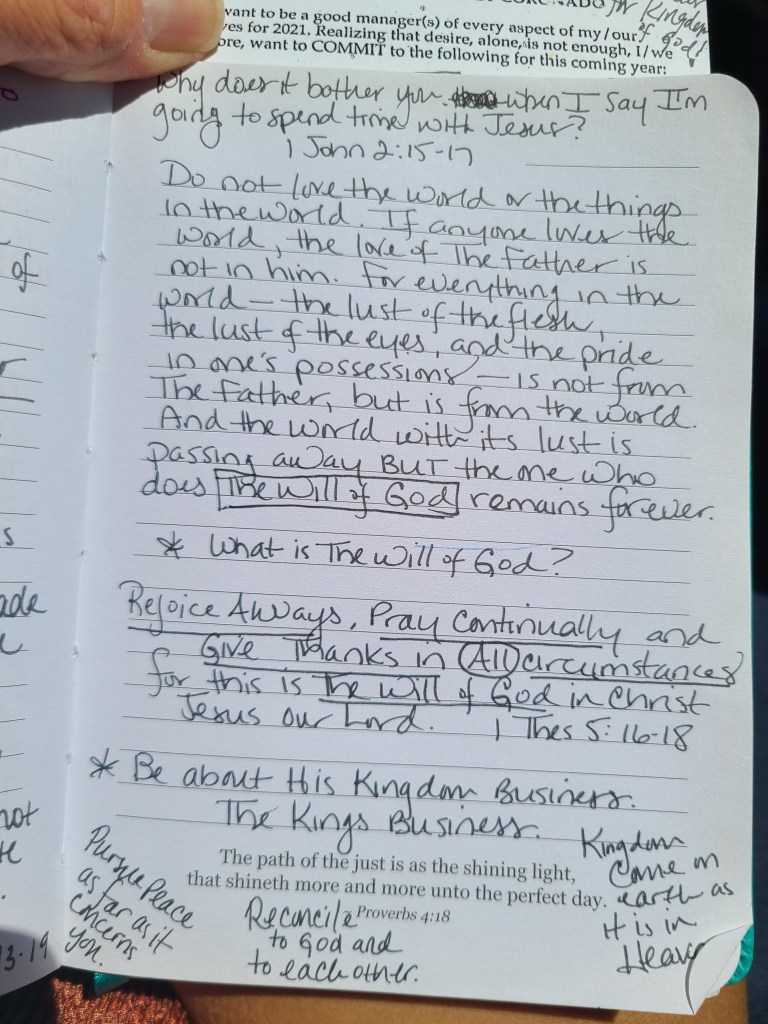 for Kingdom
of God!
want to be a good manager(s) of every aspect of my/our
ves for 2021. Realizing that desire, alone, is not enough, I/we
ore, want to COMMIT to the following for this coming year:
Why does it bother you when I say I'm
going to spend time with Jesus?
1 John 2:15-17
Do not love the world or the things
in the world. If anyone loves the
world, the love of The Father is
not in him. For everything in the
world – the lust of the flesh,
the lust of the eyes, and the pride
in one's possessions – is not from
The Father, but is from the world.
And the world with its lust is
passing away BUT the one who
does The Will of God remains forever.
* What is The Will of God?
Rejoice Always, Pray Continually and
Give Thanks in All circumstances
for this is The Will of God in Christ
Jesus our Lord. 1 Thes 5:16-18
* Be about His Kingdom Business.
The Kings Business.
The path of the just is as the shining light,
that shineth more and more unto the perfect day.
Proverbs 4:18
Pursue Peace
as far as it
concerns
you.
Reconcile
to God and
to each other.
Kingdom
Come on
earth as
it is in
Heav
of
s
ade
not
te
13-19